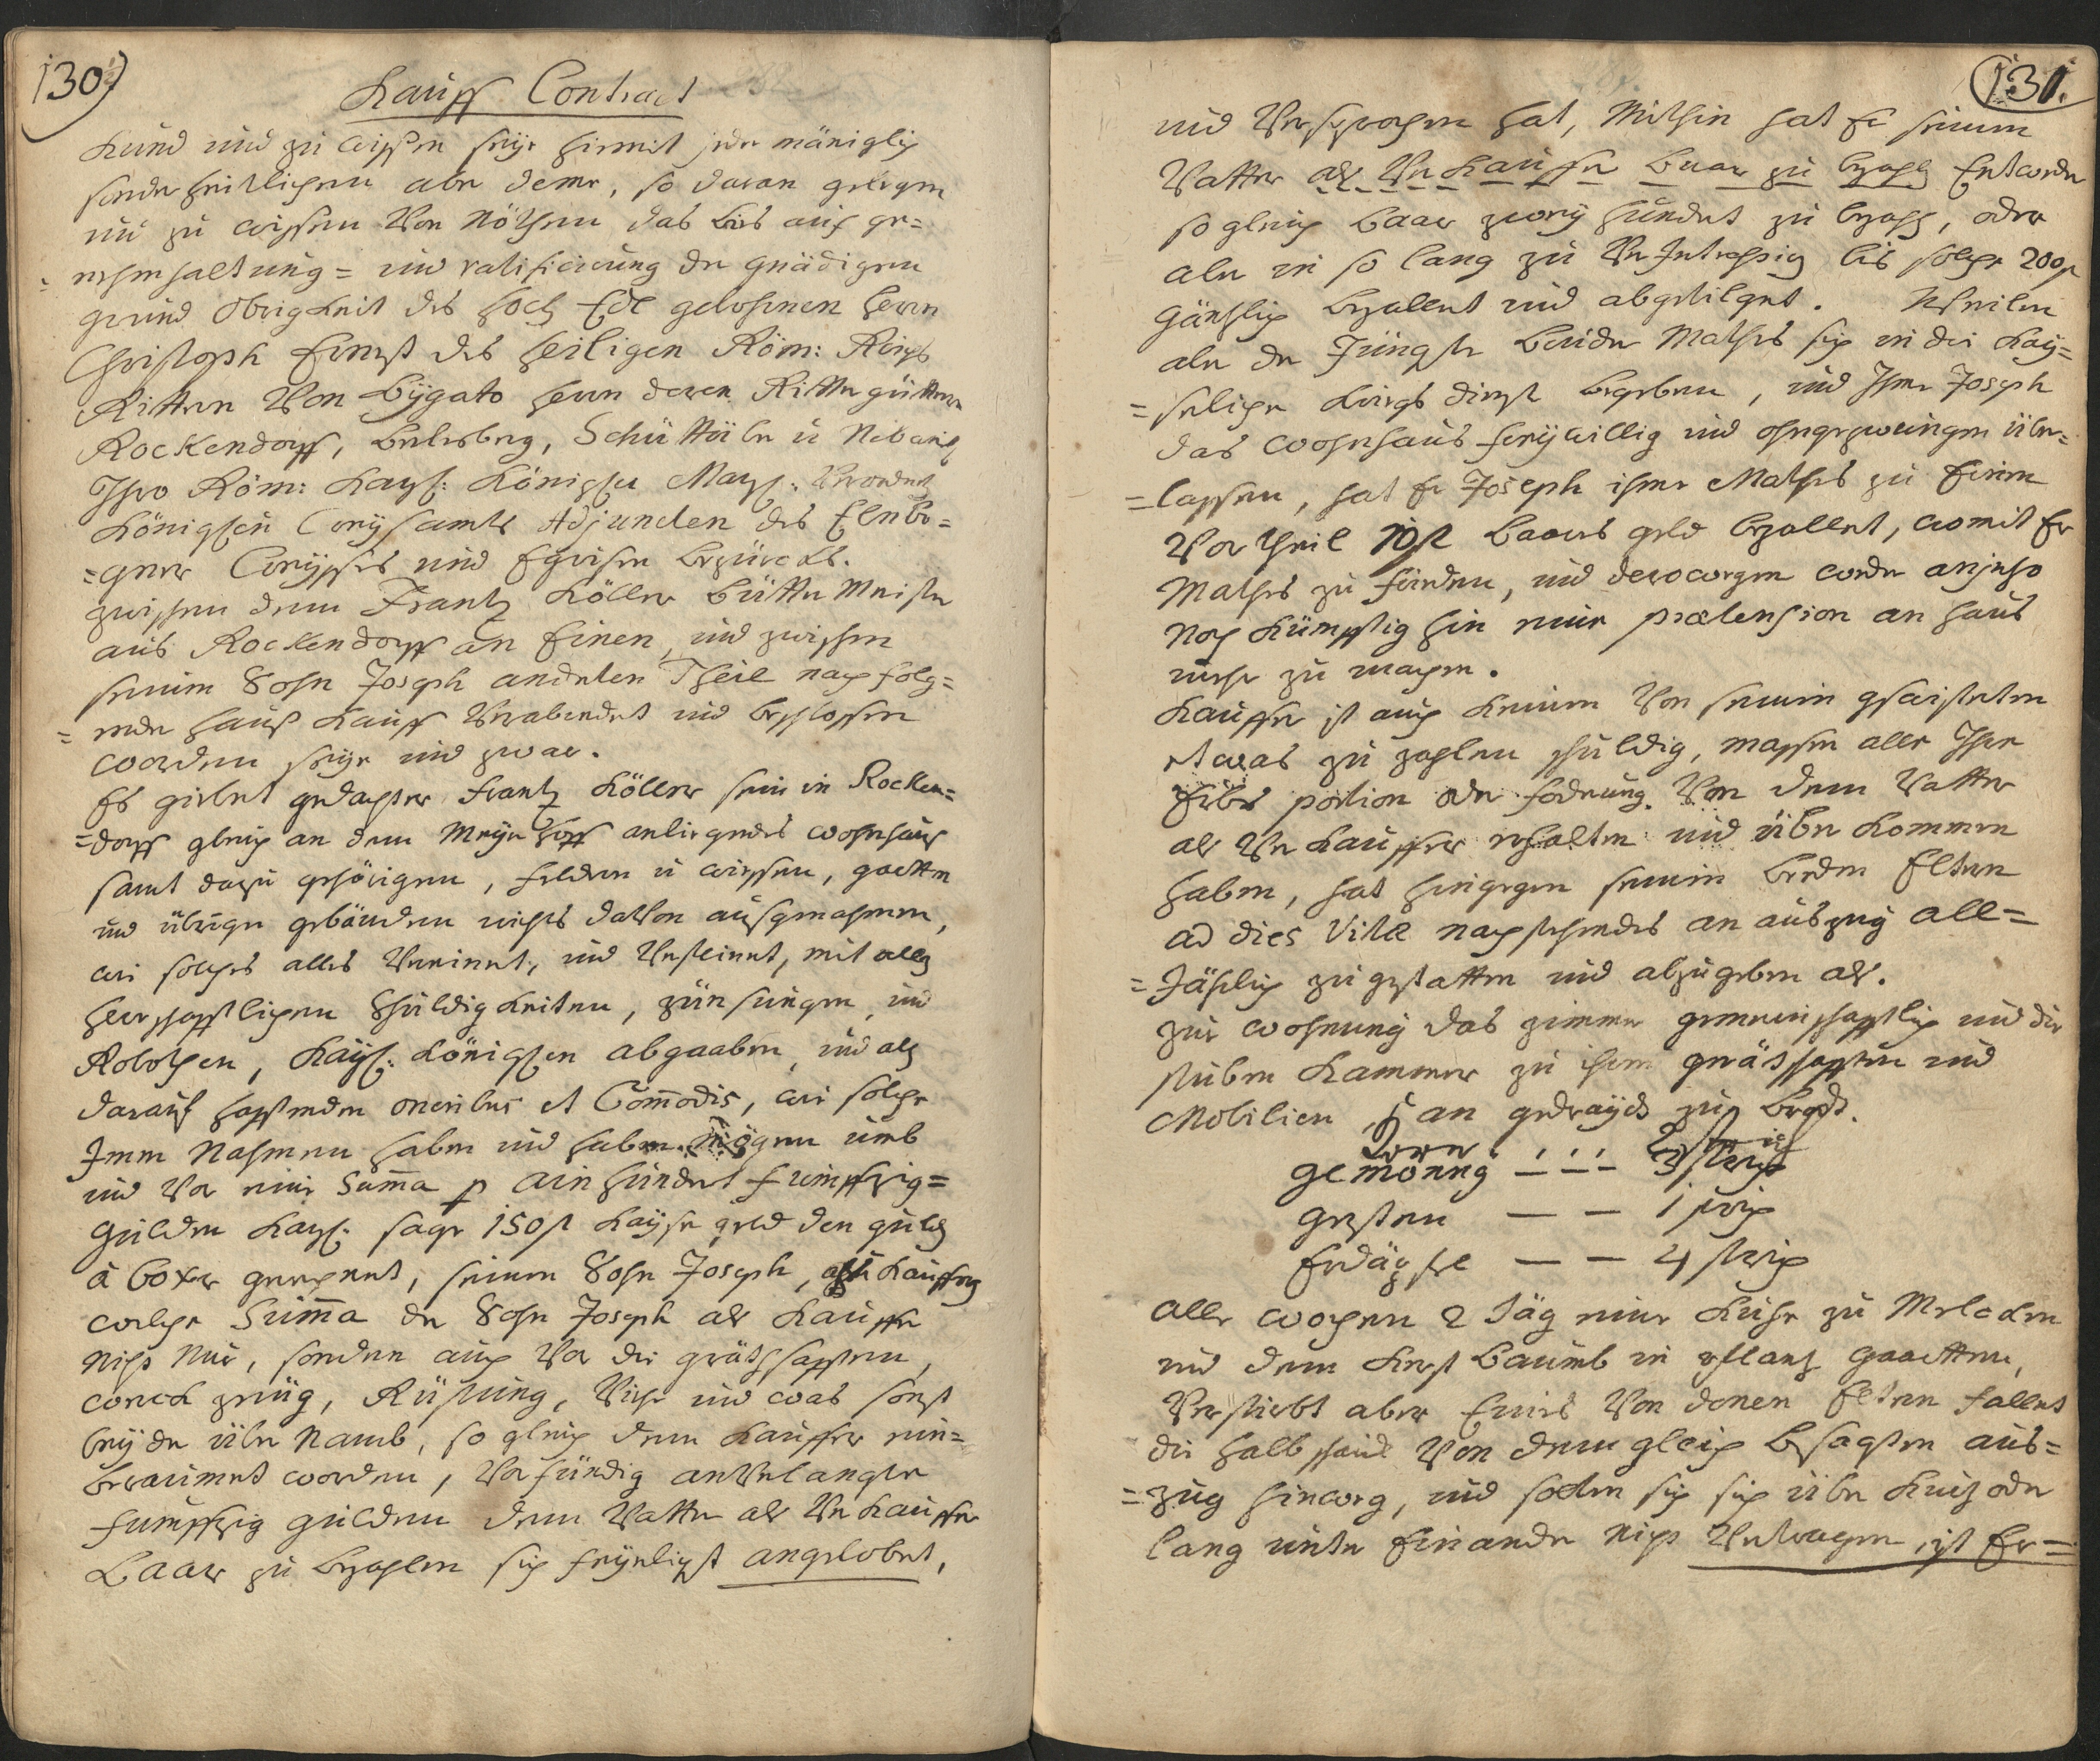 130)
Kauff Contract
Kund und zu wissen seye hiermit jeder mäniglich
sonderheitlichen aber deme, so daran gelegen
und zu wissen Von Nöthen das bis auf ge=
= nehmhaltung = und ratificirung der gnädigen
grund Obrigkeit des Hoch Edl gebohrnen Herrn
Christoph Ernst des Heiligen Röm: Reichs
Rittern Von Bÿgato Herrn deren Ritter güttern
Rockendorff, Berlesberg, Schüttüber u
Ihro Röm: Kaÿs: Königlen Maÿs:
Königlen Creÿsamts Adjuncten des Elnbo=
=gner Creÿsses und Egrischen bezürckhs.
zwischen dem Frantz Köller Bütter Meister
aus Rockendorff an Einen, und zwischen
seinem Sohn Joseph anderten Theil nach folg=
= ender haus Kauff Verabendet und beschlossen
worden seÿe und zwar.
Es giebet gedachter Frantz Köller sein in Rocken=
=dorff gleich an dem Meÿer Hoff anliegendes wohnhaus
samt dazu gehörigen, feldern u wiessen, gartten
und übrigen gebäuden nichts davon ausgenohmen,
wie solches alles Verreinet, und Versteinet, mit allen
Herrschafftlichen Schuldigkeiten, zünsungen, und
Robothen, Kaÿs: Königlen abgaaben, und all
darauf hafftenden oneribus et Com̅odis, wie solche
Immer Nahmen haben und haben mögen umb
und Vor eine Sum̅a p ain hundert fumffzig=
Gulden Kaÿs: sage 150 f Kaÿser geld den guld
à 60 xer gerechnet, seinem Sohn Joseph, als Kauffer
welche Sum̅a der Sohn Joseph als Kauffer
nicht nur, sondern auch Vor die gräthschafften,
werck zeüg, Rüstung, Viehe und was sonst
beÿ der übernamb, so gleich dem Kauffer ein=
beraumet worden, Vorfündig anverlangte
fumffzig gulden dem Vatter als Verkauffer
Baar zu bezahlen sich feÿerlichst angelobet,
131.
und Versprochen hat, Mithin hat Er seinem
Vatter als Verkauffer baar zu bezahl Entweder
so gleich baar zweÿ hundert zu bezahl, oder
aber in so lang zu Ver Intressig bis solche 200 f
gänzlich bezallent und abgetilget. Weilen
aber der Jüngste Bruder Mathes sich in die Kaÿ=
= serliche Kriegs dienst begeben, und Ihme Joseph
das wohnhaus freÿwillig und ohngezwungen über=
= lassen, hat Er Joseph ihme Mathes zu Einem
Vortheil 10 f baares geld bezallet, womit Er
Mathes zu frieden, und derowegen weder anjezo
noch kümfftig hin eine prætension an haus
mehr zu machen.
Kauffer ist auch keinem Von seinen gschwistern
etwas zu zahlen schuldig, massen alle Ihre
Erbs portion oder foderung Von dem Vatter
als Verkauffer erhalten und über kommen
haben, hat hingegen seinen beeden Eltern
ad dies Vitæ nachstehendes an auszug all=
= Jährlich zu gestatten und abzugeben als.
zur wohnung das zimmer gemeinschafftlich und die
stuben Kammer zu ihren gräthschafften und
Mobilien, an gedraÿd zu brod.
Korn
gemönng — — — 3 strich
gersten — — 1 strich
Erdäpfel — — 4 strich
alle wochen 2 Täg eine Kuhe zu Melcken
und dem Kerst Baumb in Pflantz gaartten,
Verstirbt aber Eines Von denen Eltern fallet
die halbscheid Von dem gleich besagten aus=
= zug hinweg, und solten sie sich über kurz oder
lang unter Einander nicht Vertragen, ist Er=